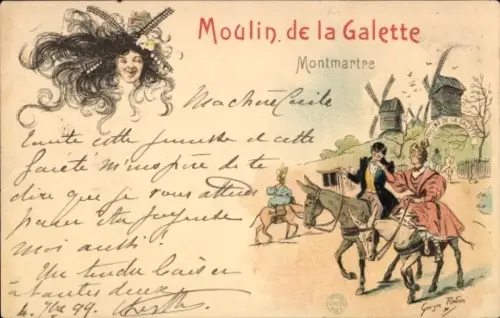 Moulin de la Galette
Montmartre
Ma chère Cécile
Toute cette jeunesse et cette
gaieté m'inspire de te
dire que je vous attends
pour être joyeuse
moi aussi.
Un tendre baiser
à toutes deux
4. 7bre 99.